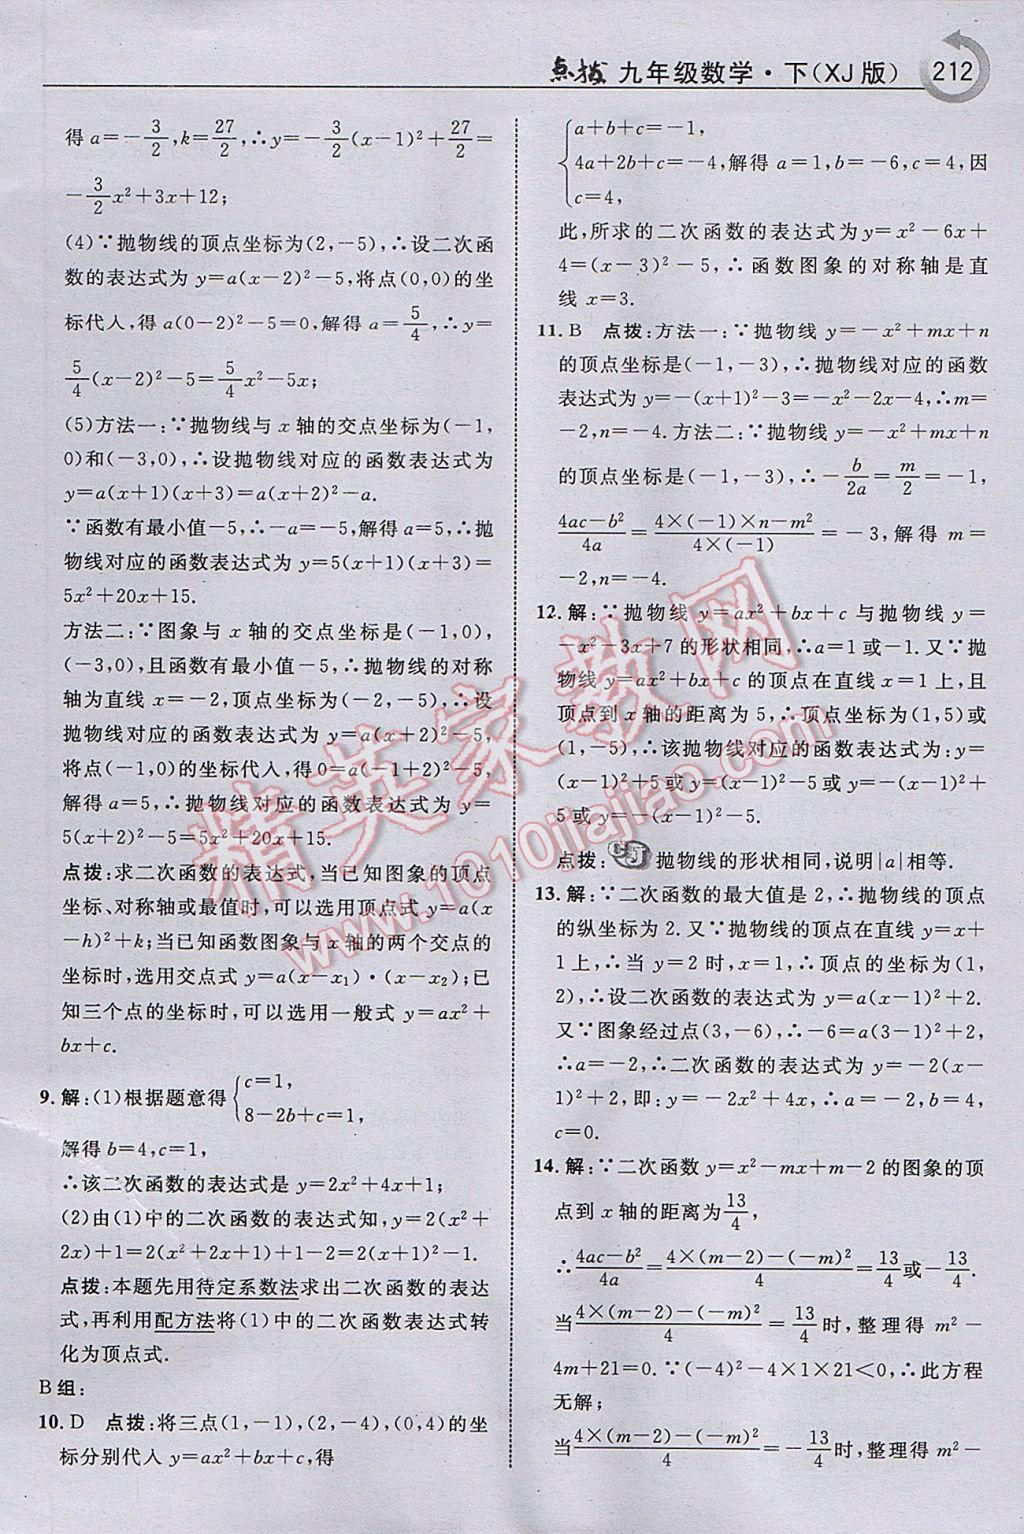 点拨 九年级数学·下(XJ版) 212
得a=-3/2,k=27/2,∴y=-3/2(x-1)²+27/2=
-3/2x²+3x+12;
(4)∵抛物线的顶点坐标为(2,-5),∴设二次函
数的表达式为y=a(x-2)²-5,将点(0,0)的坐
标代人,得a(0-2)²-5=0,解得a=5/4,∴y=
5/4(x-2)²-5=5/4x²-5x;
(5)方法一:∵抛物线与x轴的交点坐标为(-1,
0)和(-3,0),∴设抛物线对应的函数表达式为
y=a(x+1)(x+3)=a(x+2)²-a.
∵函数有最小值-5,∴-a=-5,解得a=5,∴抛
物线对应的函数表达式为y=5(x+1)(x+3)=
5x²+20x+15.
方法二:∵图象与x轴的交点坐标是(-1,0),
(-3,0),且函数有最小值-5,∴抛物线的对称
轴为直线x=-2,顶点坐标为(-2,-5),∴设
抛物线对应的函数表达式为y=a(x+2)²-5,
将点(-1,0)的坐标代人,得0=a(-1+2)²-5,
解得a=5,∴抛物线对应的函数表达式为y=
5(x+2)²-5=5x²+20x+15.
点拨:求二次函数的表达式,当已知图象的顶点
坐标、对称轴或最值时,可以选用顶点式y=a(x
-h)²+k;当已知函数图象与x轴的两个交点的
坐标时,选用交点式y=a(x-x₁)·(x-x₂);已
知三个点的坐标时,可以选用一般式y=ax²+
bx+c.
9.解:(1)根据题意得{c=1,
8-2b+c=1,
解得b=4,c=1,
∴该二次函数的表达式是y=2x²+4x+1;
(2)由(1)中的二次函数的表达式知,y=2(x²+
2x)+1=2(x²+2x+1-1)+1=2(x+1)²-1.
点拨:本题先用待定系数法求出二次函数的表达
式,再利用配方法将(1)中的二次函数表达式转
化为顶点式.
B组:
10.D 点拨:将三点(1,-1),(2,-4),(0,4)的坐
标分别代人y=ax²+bx+c,得
{a+b+c=-1,
4a+2b+c=-4,解得a=1,b=-6,c=4,因
c=4,
此,所求的二次函数的表达式为y=x²-6x+
4=(x-3)²-5,∴函数图象的对称轴是直
线x=3.
11.B 点拨:方法一:∵抛物线y=-x²+mx+n
的顶点坐标是(-1,-3),∴抛物线对应的函数
表达式为y=-(x+1)²-3=-x²-2x-4,∴m=
-2,n=-4.方法二:∵抛物线y=-x²+mx+n
的顶点坐标是(-1,-3),∴-b/2a=m/2=-1,
(4ac-b²)/4a=(4×(-1)×n-m²)/(4×(-1))=-3,解得m=
-2,n=-4.
12.解:∵抛物线y=ax²+bx+c与抛物线y=
-x²-3x+7的形状相同,∴a=1或-1.又∵抛
物线y=ax²+bx+c的顶点在直线x=1上,且
顶点到x轴的距离为5,∴顶点坐标为(1,5)或
(1,-5),∴该抛物线对应的函数表达式为:y=
(x-1)²+5或y=(x-1)²-5或y=-(x-1)²+
5或y=-(x-1)²-5.
点拨:CJ抛物线的形状相同,说明|a|相等.
13.解:∵二次函数的最大值是2,∴抛物线的顶点
的纵坐标为2.又∵抛物线的顶点在直线y=x+
1上,∴当y=2时,x=1,∴顶点坐标为(1,
2),∴设二次函数的表达式为y=a(x-1)²+2.
又∵图象经过点(3,-6),∴-6=a(3-1)²+2,
∴a=-2,∴二次函数的表达式为y=-2(x-
1)²+2,即:y=-2x²+4x,∴a=-2,b=4,
c=0.
14.解:∵二次函数y=x²-mx+m-2的图象的顶
点到x轴的距离为13/4,
∴(4ac-b²)/4a=(4×(m-2)-(-m)²)/4=13/4或-13/4.
当(4×(m-2)-(-m)²)/4=13/4时,整理得m²-
4m+21=0.∵(-4)²-4×1×21<0,∴此方程
无解;
当(4×(m-2)-(-m)²)/4=-13/4时,整理得m²-
精英家教网
www.1010jiajiao.com